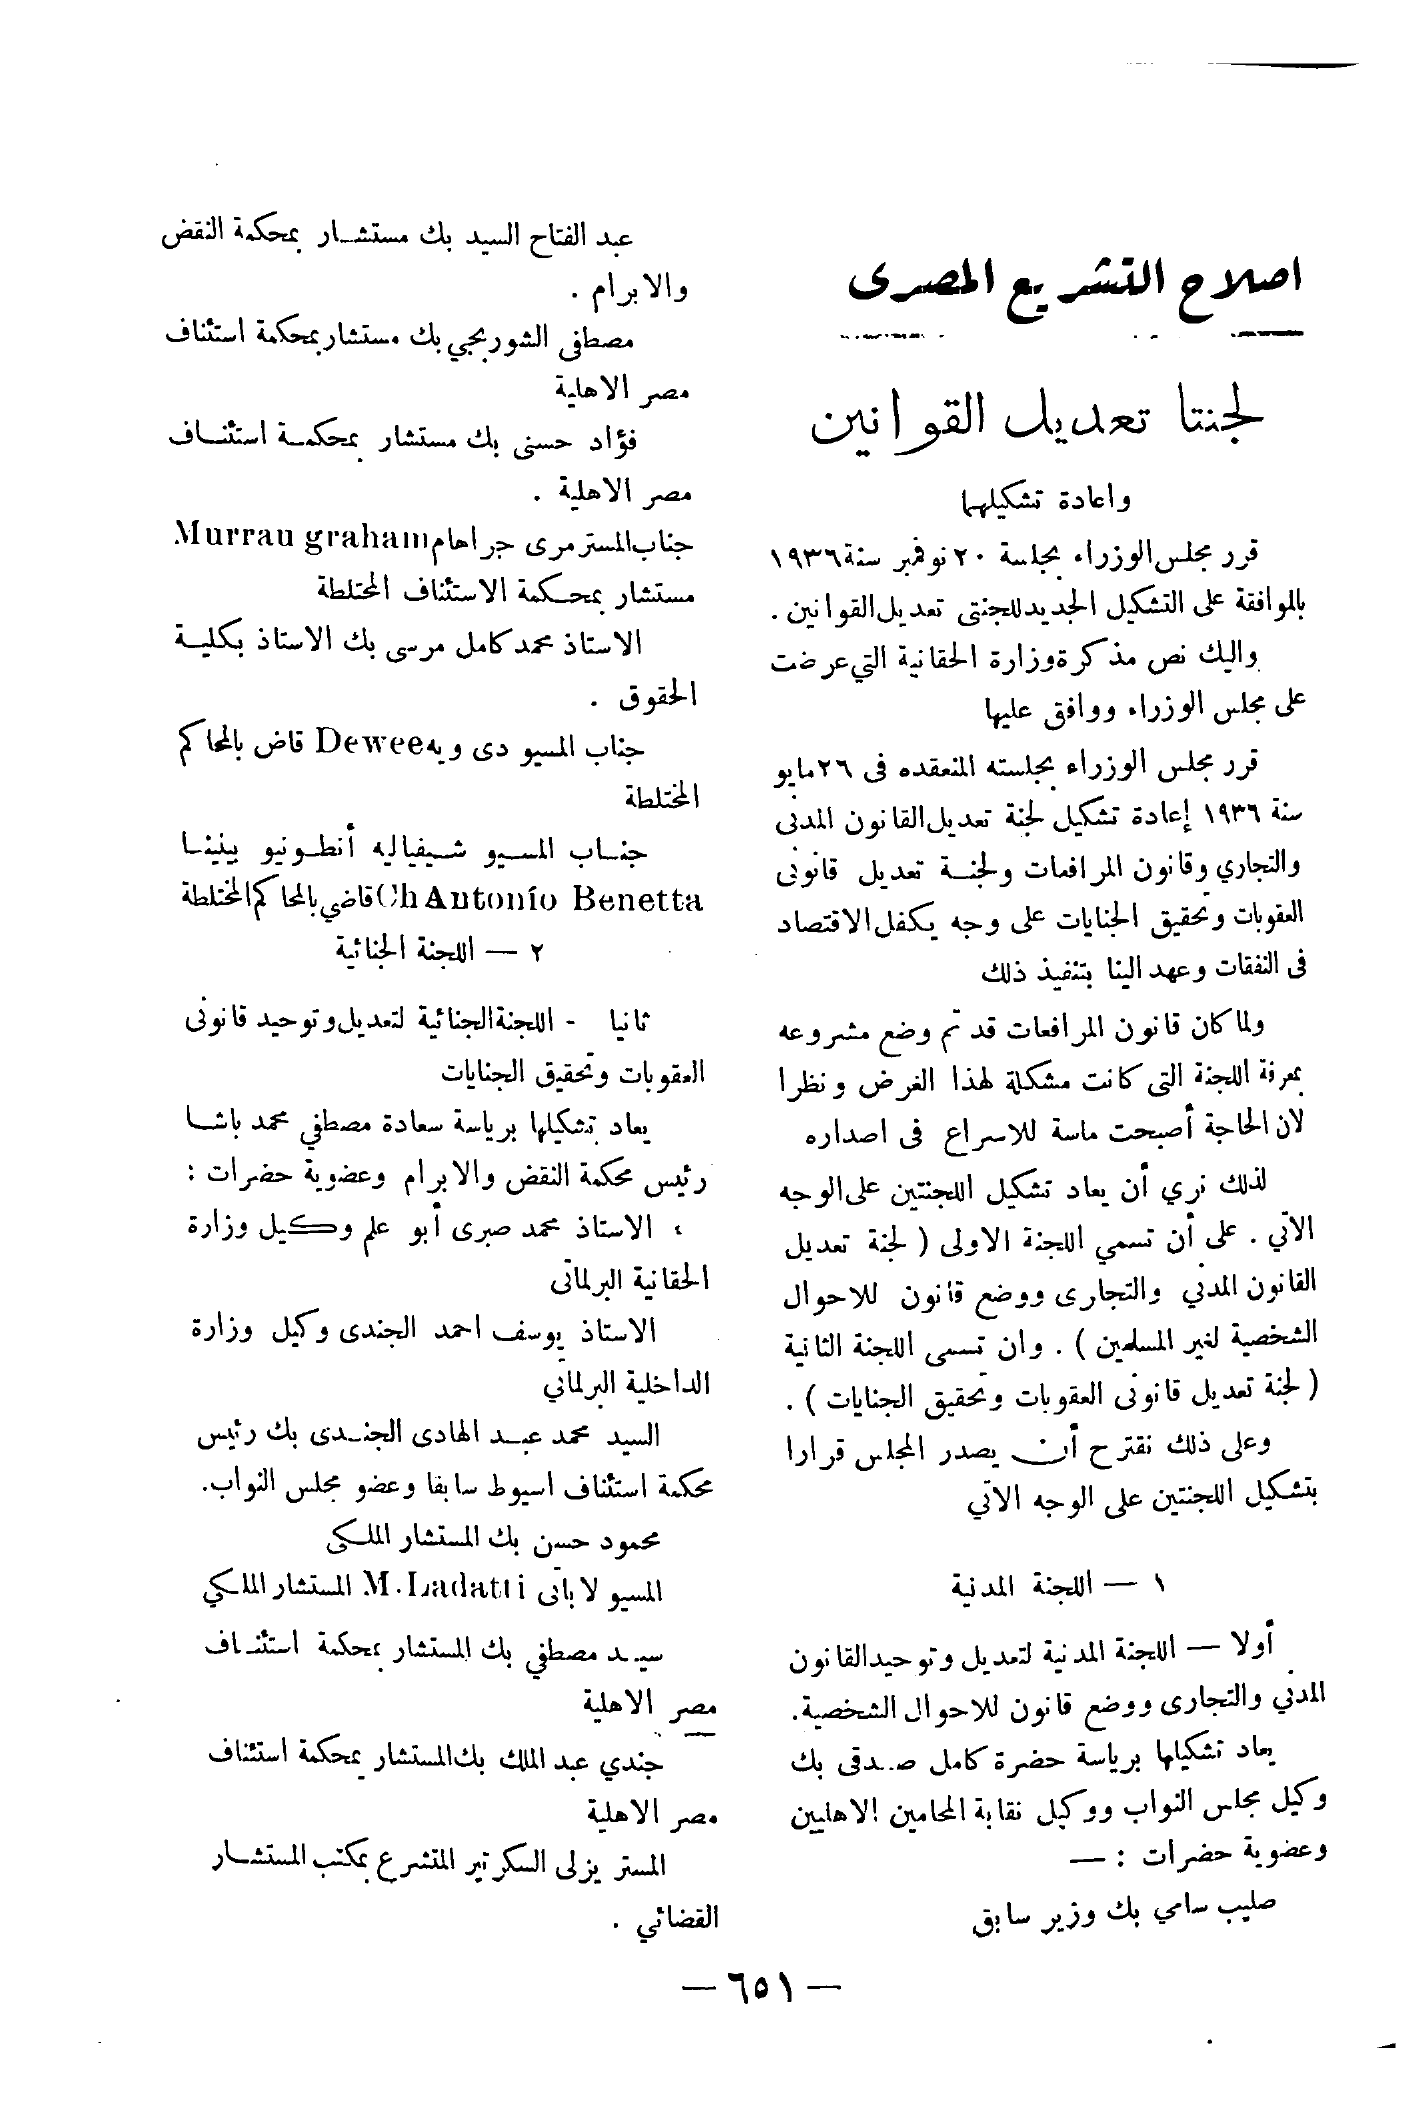 اصلاح التشريع المصرى
لجنتا تعديل القوانين
واعادة تشكيلهما
قرر مجلس الوزراء بجلسة ٢٠ نوفمبر سنة ١٩٣٦
بالموافقة على التشكيل الجديد للجنتى تعديل القوانين .
واليك نص مذكرة وزارة الحقانية التي عرضت
على مجلس الوزراء ووافق عليها
قرر مجلس الوزراء بجلسته المنعقده فى ٢٦ مايو
سنة ١٩٣٦ إعادة تشكيل لجنة تعديل القانون المدنى
والتجاري وقانون المرافعات ولجنة تعديل قانونى
العقوبات وتحقيق الجنايات على وجه يكفل الاقتصاد
فى النفقات وعهد الينا بتنفيذ ذلك
ولما كان قانون المرافعات قد تم وضع مشروعه
بمعرفة اللجنة التى كانت مشكلة لهذا الغرض ونظرا
لان الحاجة أصبحت ماسة للاسراع فى اصداره
لذلك نري أن يعاد تشكيل اللجنتين على الوجه
الآتي . على أن تسمي اللجنة الاولى ( لجنة تعديل
القانون المدني والتجارى ووضع قانون للاحوال
الشخصية لغير المسلمين ) . وان تسمى اللجنة الثانية
( لجنة تعديل قانونى العقوبات وتحقيق الجنايات ) .
وعلى ذلك نقترح أن يصدر المجلس قرارا
بتشكيل اللجنتين على الوجه الآتي
١ — اللجنة المدنية
أولا — اللجنة المدنية لتعديل وتوحيد القانون
المدني والتجارى ووضع قانون للاحوال الشخصية.
يعاد تشكيلها برياسة حضرة كامل صدقى بك
وكيل مجلس النواب ووكيل نقابة المحامين الاهليين
وعضوية حضرات : —
صليب سامي بك وزير سابق
عبد الفتاح السيد بك مستشار بمحكمة النقض
والابرام .
مصطفى الشوربجي بك مستشار بمحكمة استئناف
مصر الاهلية
فؤاد حسنى بك مستشار بمحكمة استئناف
مصر الاهلية .
جناب المستر مرى جراهام Murrau graham
مستشار بمحكمة الاستئناف المختلطة
الاستاذ محمد كامل مرسى بك الاستاذ بكلية
الحقوق .
جناب المسيو دى ويه Dewee قاض بالمحاكم
المختلطة
جناب المسيو شيفياليه أنطونيو بينيتا
Ch Antonio Benetta قاضي بالمحاكم المختلطة
٢ — اللجنة الجنائية
ثانيا - اللجنة الجنائية لتعديل وتوحيد قانونى
العقوبات وتحقيق الجنايات
يعاد تشكيلها برياسة سعادة مصطفي محمد باشا
رئيس محكمة النقض والابرام وعضوية حضرات :
الاستاذ محمد صبرى أبو علم وكيل وزارة
الحقانية البرلمانى
الاستاذ يوسف احمد الجندى وكيل وزارة
الداخلية البرلماني
السيد محمد عبد الهادى الجندى بك رئيس
محكمة استئناف اسيوط سابقا وعضو مجلس النواب.
محمود حسن بك المستشار الملكى
المسيو لاباتى M. Ladatti المستشار الملكي
سيد مصطفي بك المستشار بمحكمة استئناف
مصر الاهلية
جندي عبد الملك بك المستشار بمحكمة استئناف
مصر الاهلية
المستر يزلى السكرتير المتشرع بمكتب المستشار
القضائي .
— ٦٥١ —